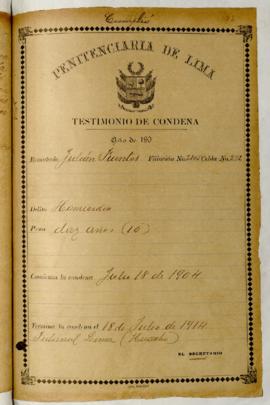 Cumplió
PENITENCIARIA DE LIMA
TESTIMONIO DE CONDENA
Año de 190
Rematado, Julián Fuentes Filiación No. Celda No.
Delito Homicidio
Pena diez años (10)
Comienza la condena Julio 18 de 1904
Termina la condena el 18 de Julio de 1914
Tribunal Lima (Huacho)
EL SECRETARIO